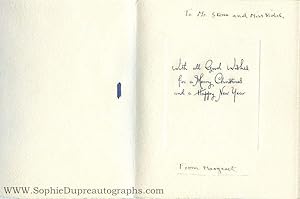 To Mr. Stone and Miss
With all Good Wishes
for a Merry Christmas
and a Happy New Year
From Margaret
© www.SophieDupreautographs.com